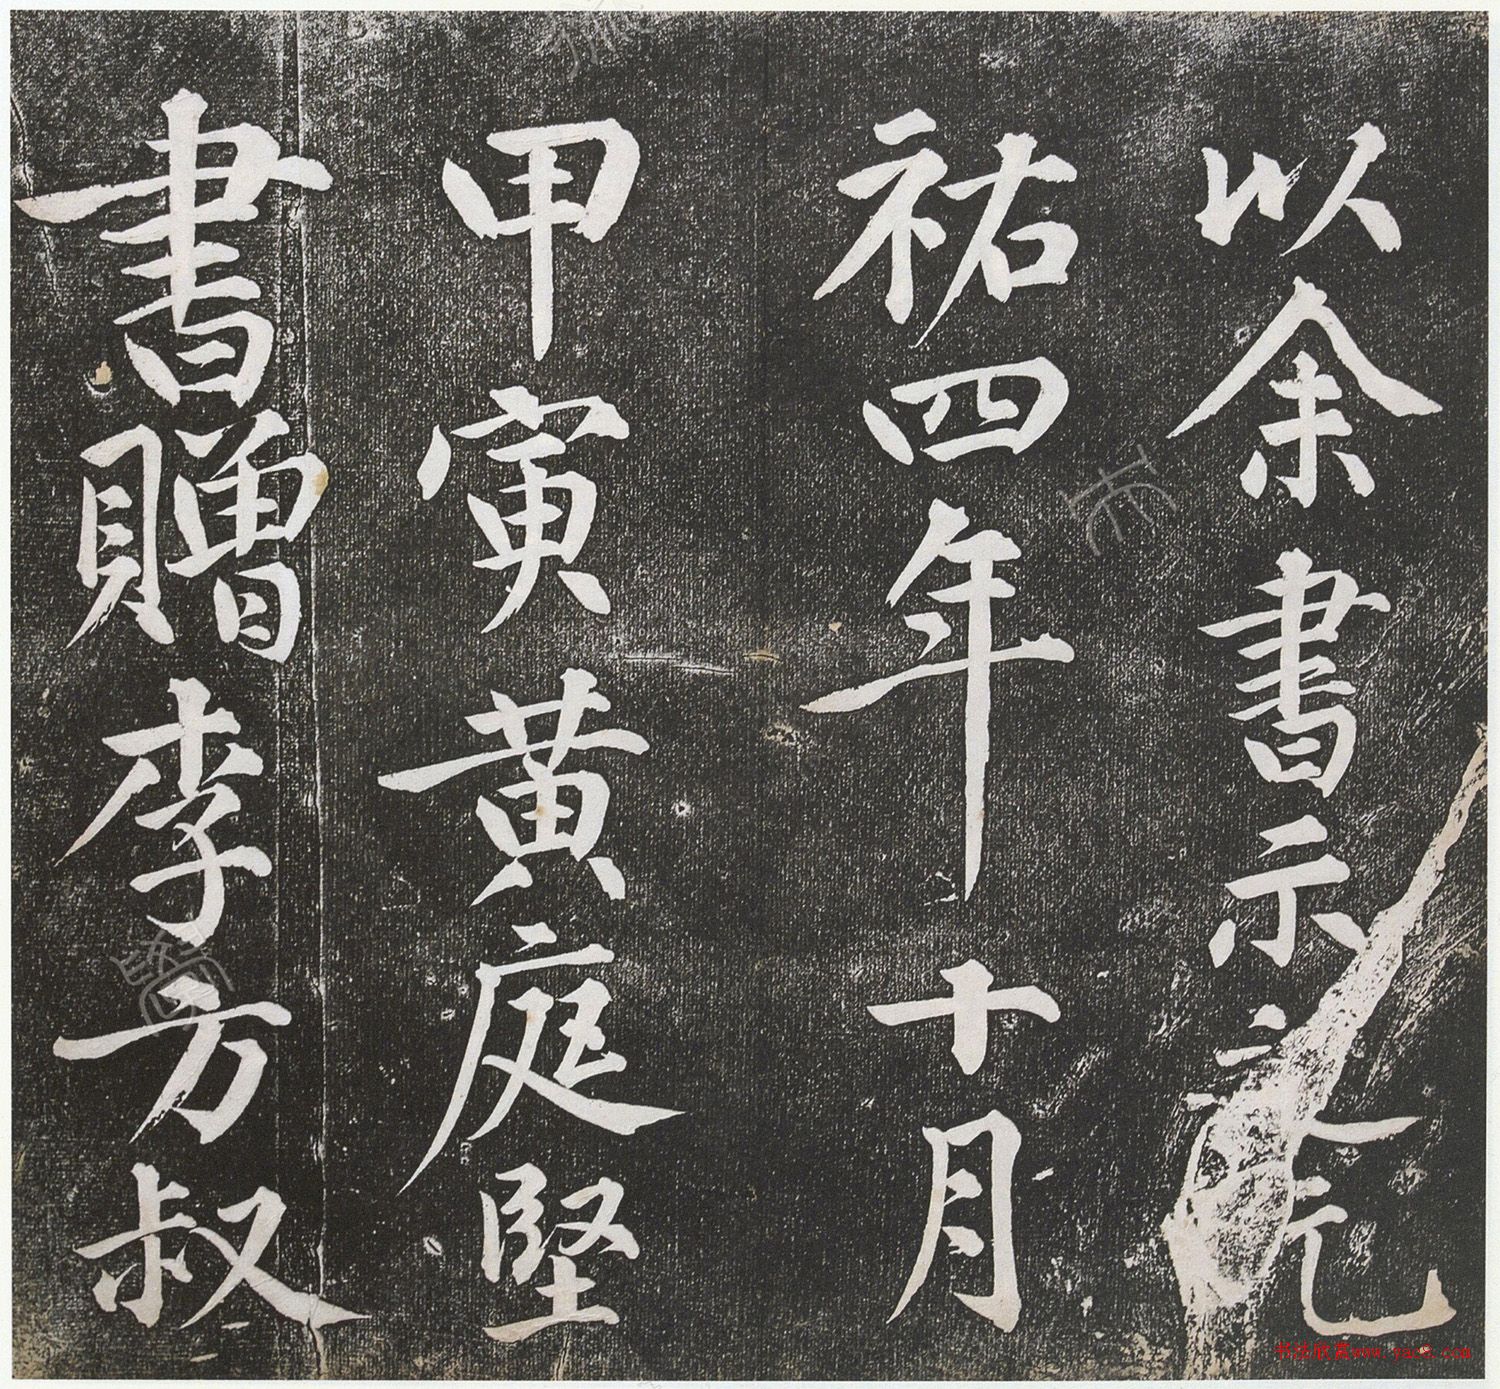 以余書示之元
祐四年十月
甲寅黃庭堅
書贈李方叔
书法欣赏www.yac8.com